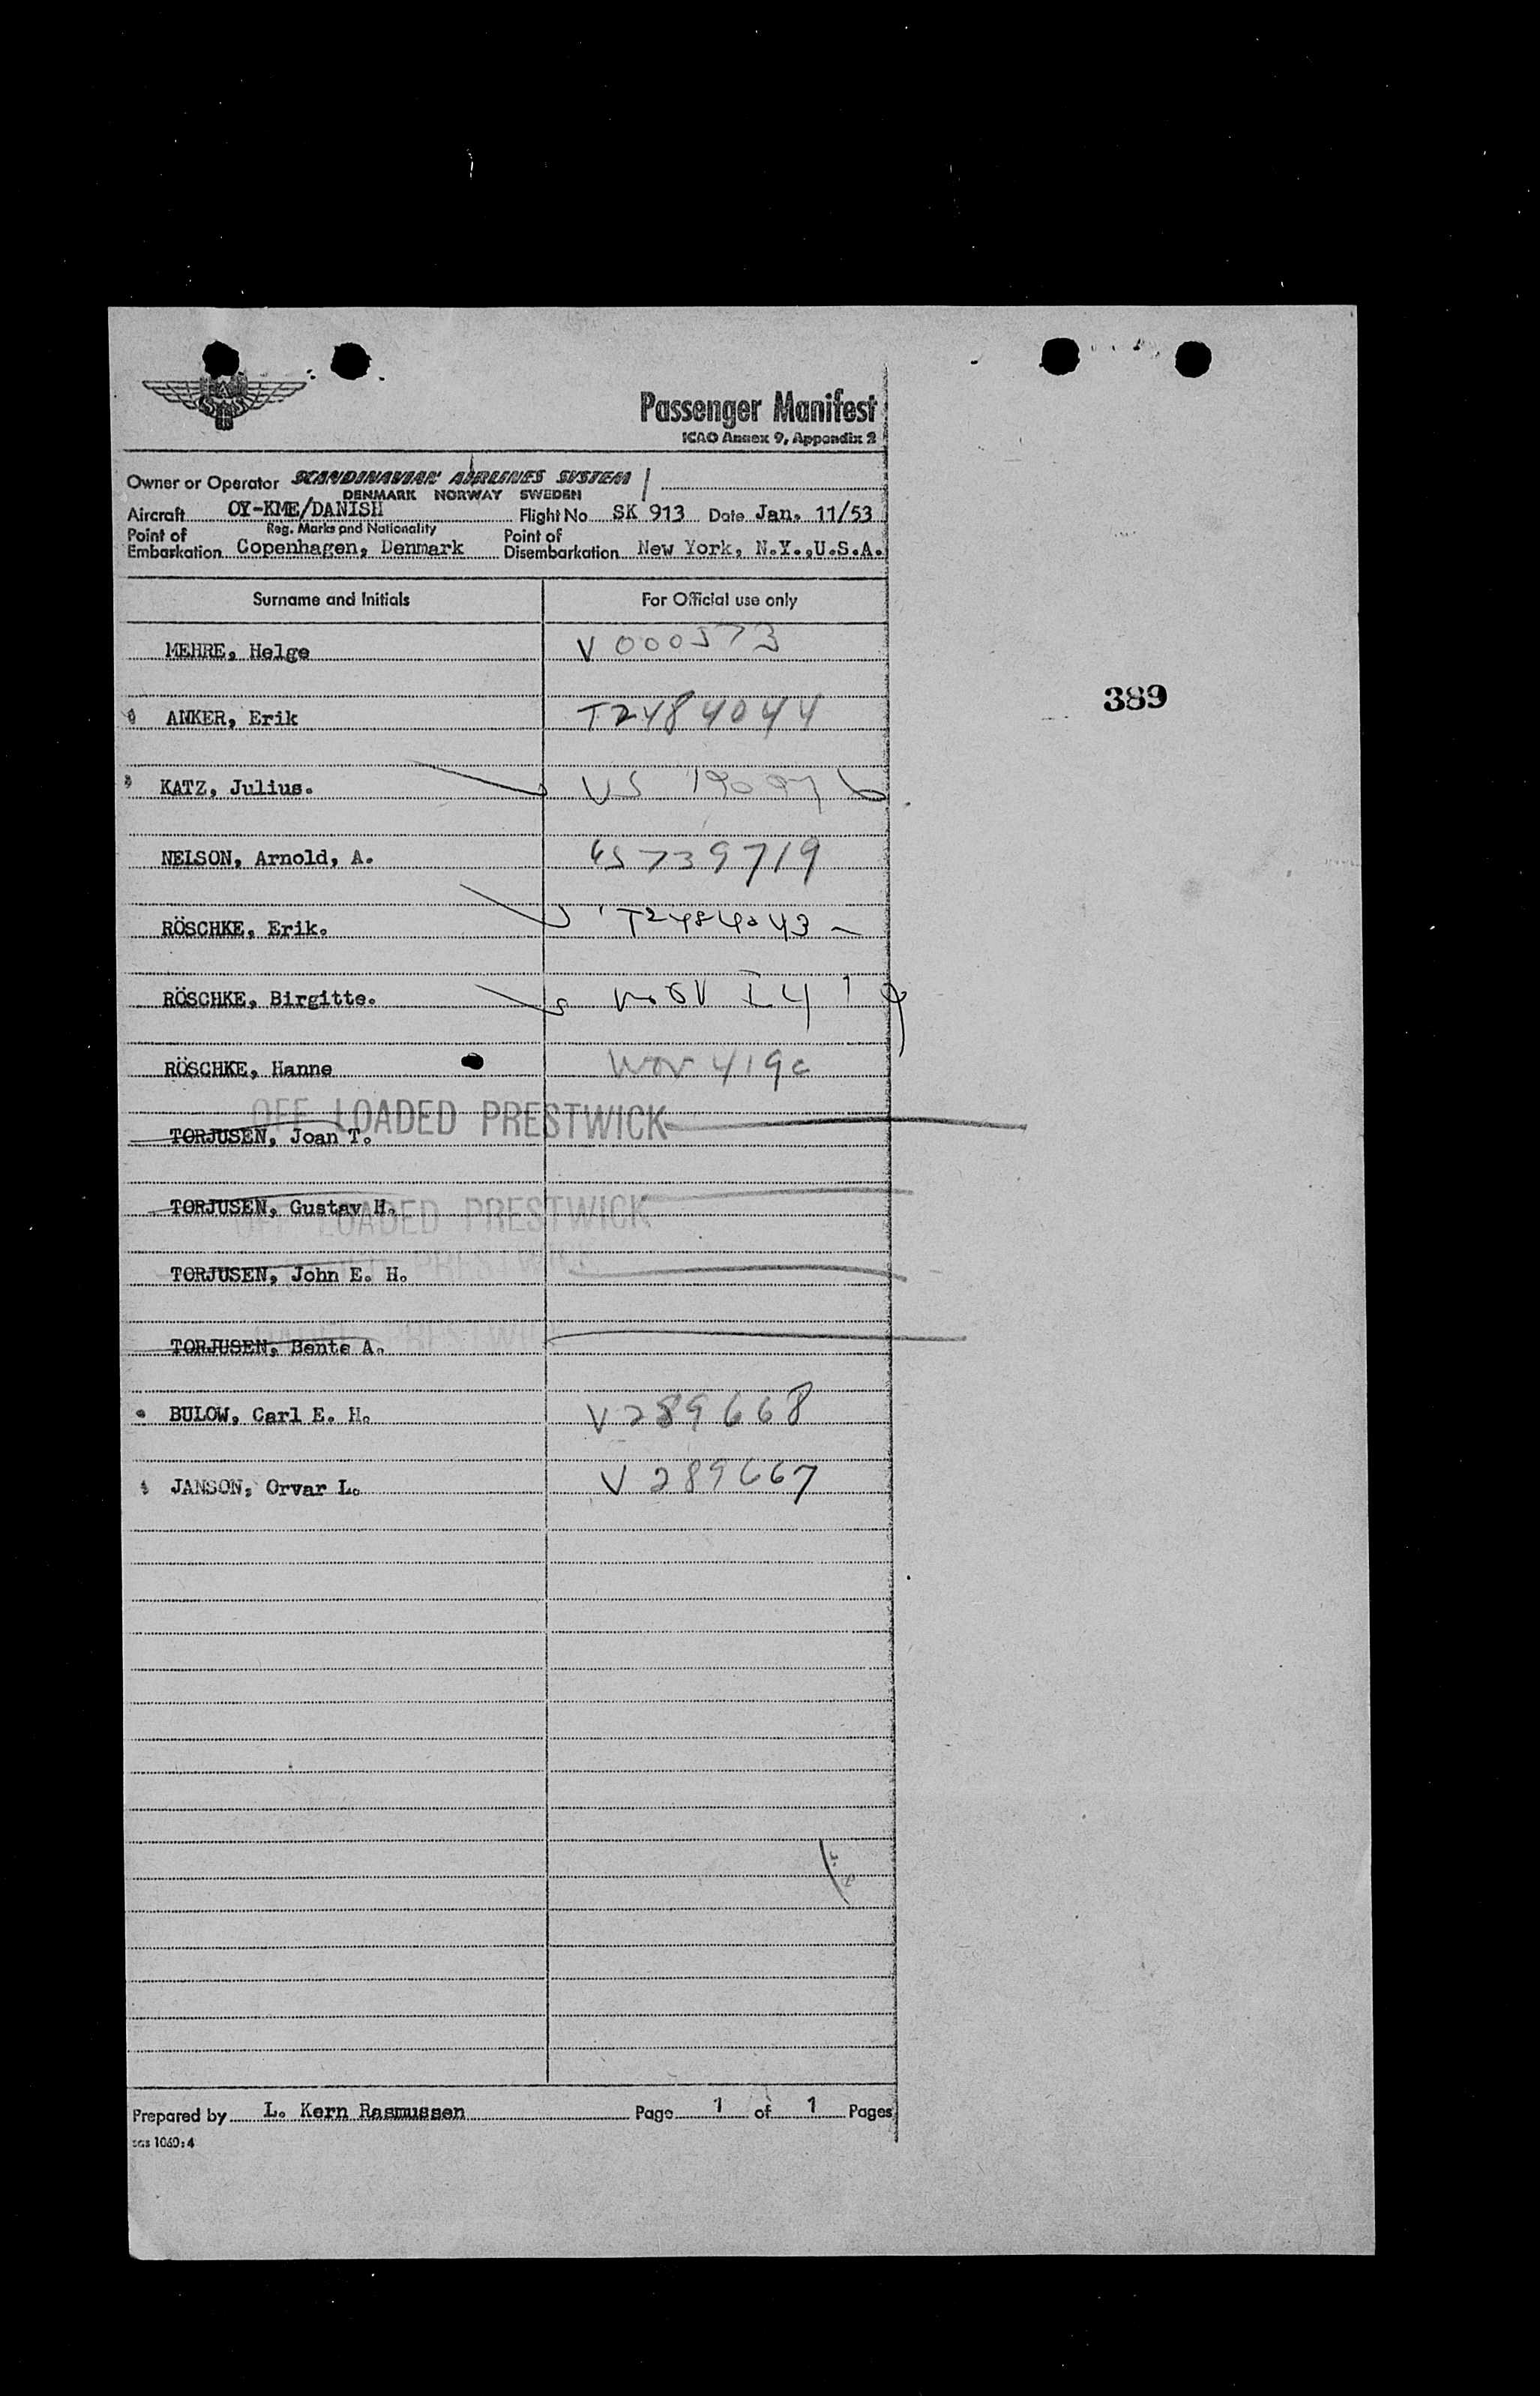 SAS
Passenger Manifest
ICAO Annex 9, Appendix 2
Owner or Operator SCANDINAVIAN AIRLINES SYSTEM
DENMARK NORWAY SWEDEN
Aircraft OY-KME/DANISH Flight No SK 913 Date Jan. 11/53
Reg. Marks and Nationality
Point of Embarkation Copenhagen, Denmark Point of Disembarkation New York, N.Y.,U.S.A.
Surname and Initials For Official use only
MEHRE, Helge V 000573
389
ANKER, Erik T2484044
KATZ, Julius. US
NELSON, Arnold, A. US 739719
RÖSCHKE, Erik. T2484043
RÖSCHKE, Birgitte.
RÖSCHKE, Hanne
OFF LOADED PRESTWICK
TORJUSEN, Joan T.
TORJUSEN, Gustav H.
OFF LOADED PRESTWICK
PRESTWICK
TORJUSEN, John E. H.
PRESTWICK
TORJUSEN, Bente A.
BULOW, Carl E. H. V 289668
JANSON, Orvar L. V 289667
Prepared by L. Kern Rasmussen Page 1 of 1 Pages
sas 1060:4